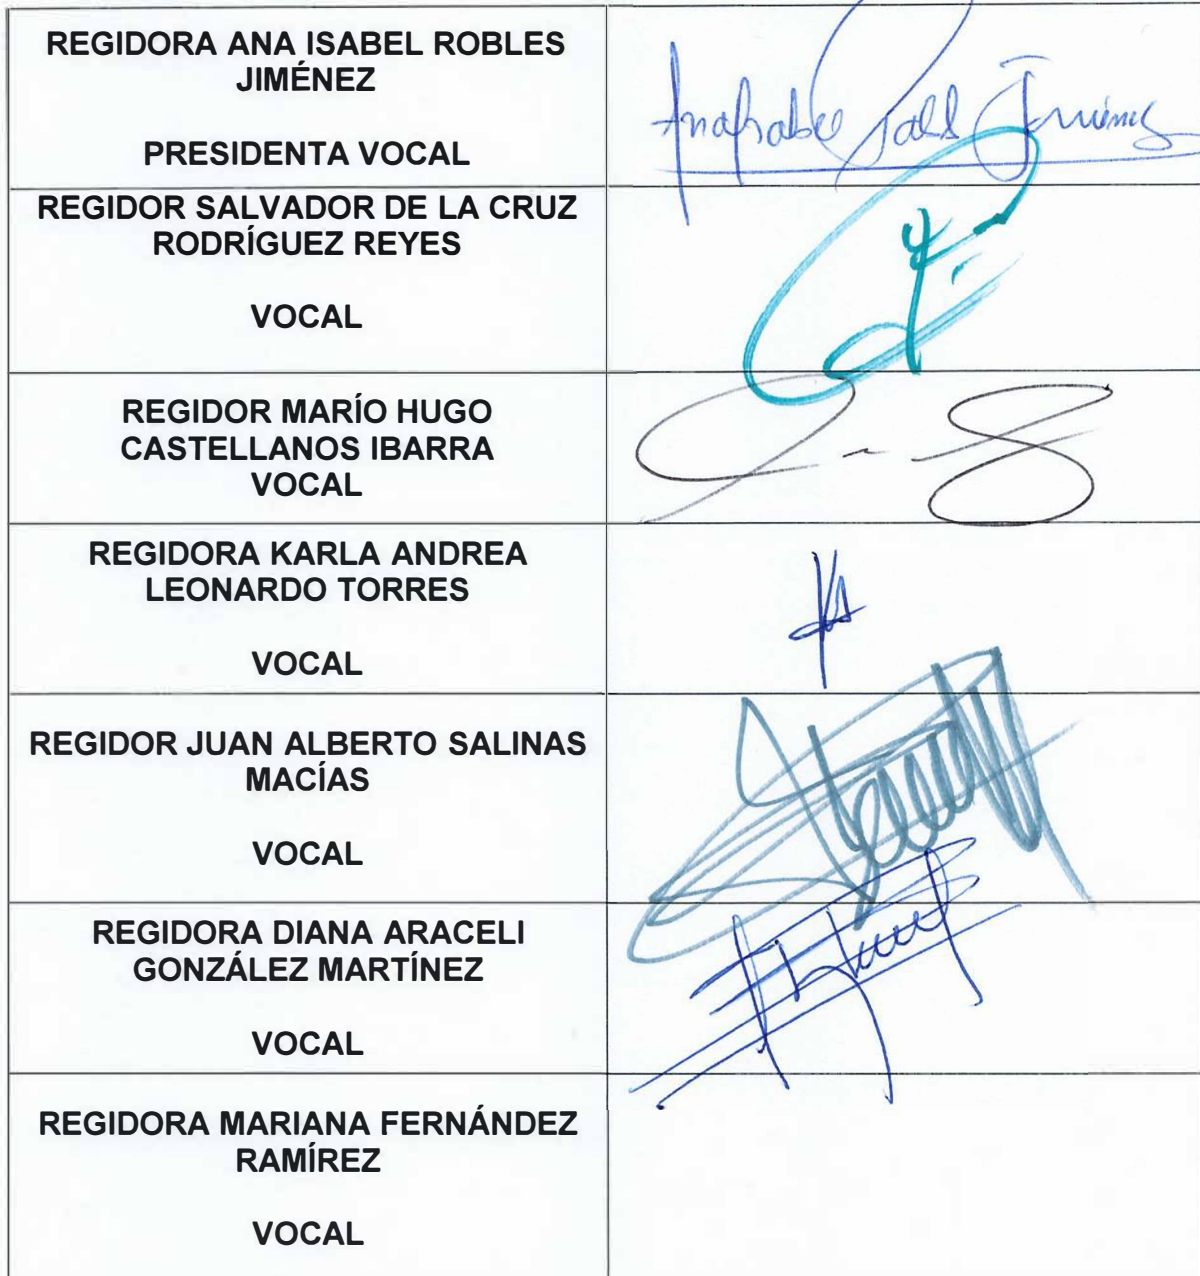 REGIDORA ANA ISABEL ROBLES
JIMÉNEZ
PRESIDENTA VOCAL
REGIDOR SALVADOR DE LA CRUZ
RODRÍGUEZ REYES
VOCAL
REGIDOR MARÍO HUGO
CASTELLANOS IBARRA
VOCAL
REGIDORA KARLA ANDREA
LEONARDO TORRES
VOCAL
REGIDOR JUAN ALBERTO SALINAS
MACÍAS
VOCAL
REGIDORA DIANA ARACELI
GONZÁLEZ MARTÍNEZ
VOCAL
REGIDORA MARIANA FERNÁNDEZ
RAMÍREZ
VOCAL